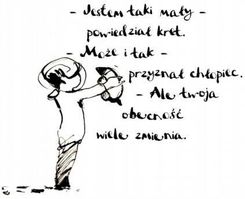 - Jestem taki mały -
powiedział kret.
- Może i tak -
przyznał chłopiec.
- Ale twoja
obecność
wiele zmienia.